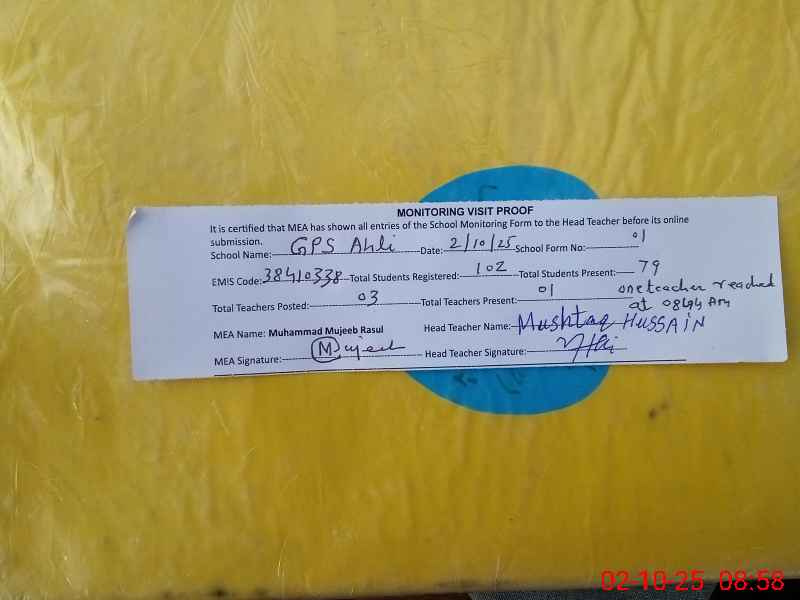 MONITORING VISIT PROOF
It is certified that MEA has shown all entries of the School Monitoring Form to the Head Teacher before its online
submission.
School Name: GPS Ahli Date: 2/10/25 School Form No: 01
EMIS Code: 38410338 Total Students Registered: 102 Total Students Present: 79
Total Teachers Posted: 03 Total Teachers Present: 01 one teacher reached
at 08:44 Am
MEA Name: Muhammad Mujeeb Rasul Head Teacher Name: Mushtaq HUSSAIN
MEA Signature: Mujeeb Head Teacher Signature:
02-10-25 08:58